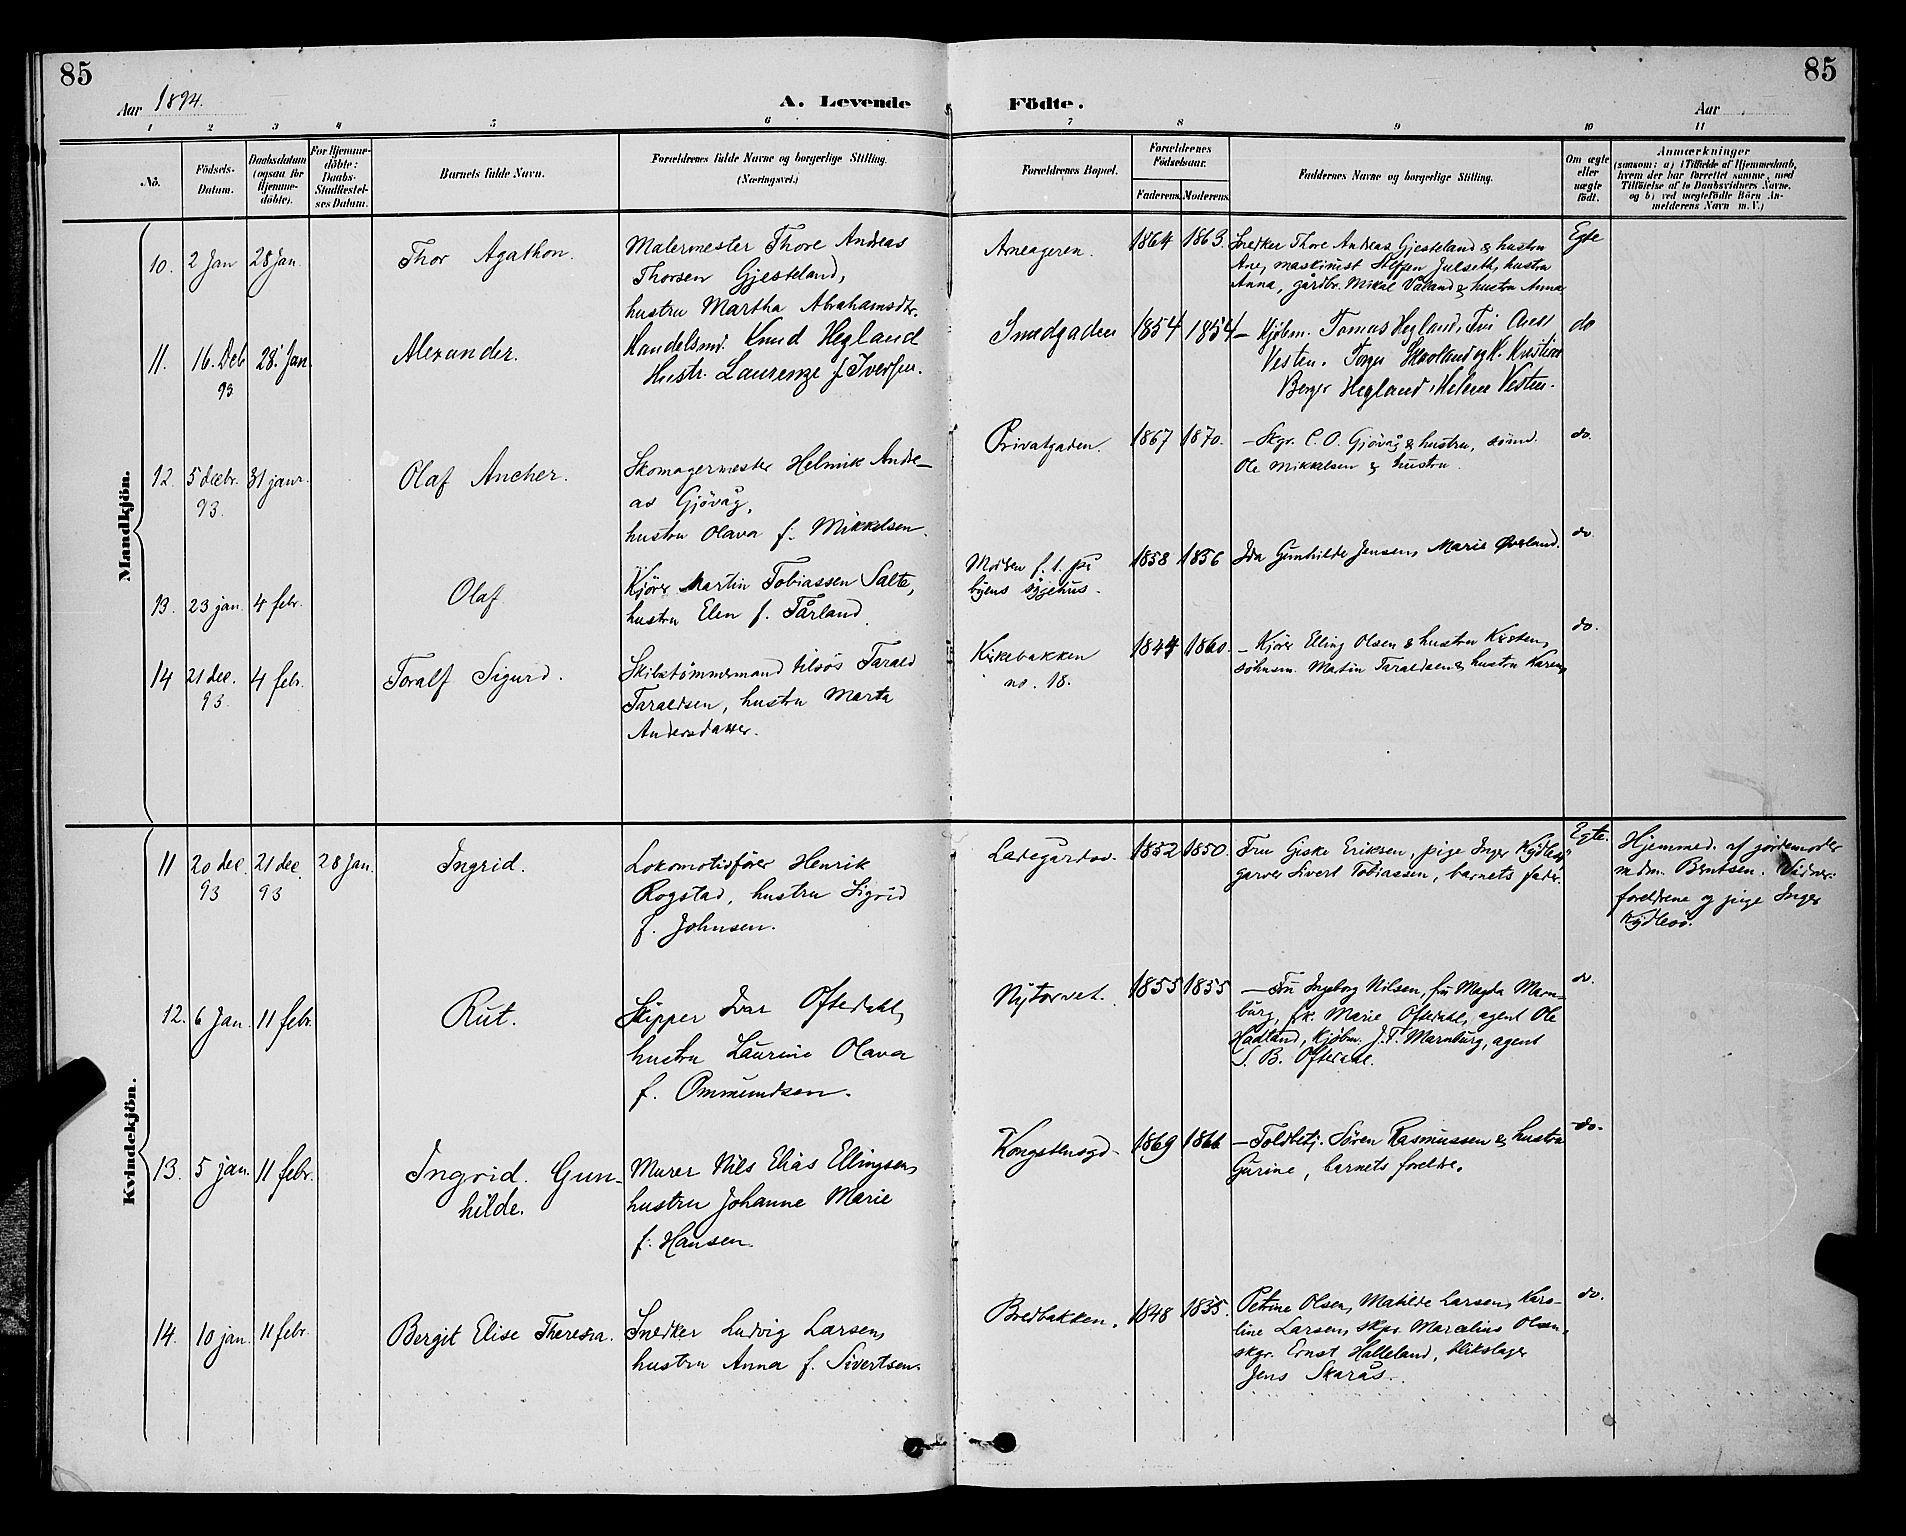 85
85
Aar 1894.
A. Levende Födte.
Aar
1 2 3 4 5 6 7 8 9 10 11
No.
Födsels-Datum.
Daabsdatum (ogsaa for Hjemme-döbte).
For Hjemme-döbte: Daabs-Stadfæstel-ses Datum.
Barnets fulde Navn.
Forældrenes fulde Navne og borgerlige Stilling.
(Næringsvei.)
Forældrenes Bopæl.
Forældrenes Födselsaar.
Faderens. Moderens.
Faddernes Navne og borgerlige Stilling.
Om ægte eller uægte födt.
Anmærkninger
(saasom: a) i Tilfælde af Hjemmedaab,
hvem der har forrettet samme, med
Tilföielse af to Daabsvidners Navne.
og b) ved uægtefödte Börn An-
melderens Navn m. V.)
Mandkjön.
10. 2 Jan 28 Jan. Thor Agathon.
Malermester Thore Andreas
Thorsen Gjesteland,
hustru Martha Abrahamsdtr.
Arneageren. 1864 1863.
Snedker Thore Andreas Gjesteland & hustru
Ane, maskinist Steffen Julseth, hustru
Anna, gårdbr. Mikal Våland & hustru Anna
Egte
11. 16. Deb 93 28. Jan. Alexander.
Handelsmd. Knud Hegland
Hustr. Laurenze f. Iversen.
Smedgaden 1854 1854
– Kjøbm. Tomas Hegland,
Vesten. Torger Skorland og K. Kristine
Berger Hegland, Helene Vesten.
do
12. 5 decbr. 93. 31 janr. Olaf Ancher.
Skomagermester Helmik Andre-
as Gjövåg,
hustru Olava f. Mikkelsen.
Privatgaden. 1867 1870.
– Skgr. C. O. Gjövåg & hustru, sömd.
Ole Mikkelsen & hustru.
do.
13. 23 jan. 4 febr. Olaf
Kjører Martin Tobiassen Salte,
hustru Elen f. Tårland.
Moderen f. t. på
byens sygehus.
1858 1856
Ida Gunhilde Jensen, Marie Øverland.
do.
14 21 dec. 93. 4 febr. Toralf Sigurd.
Skibstømmermand tilsös Tarald
Taraldsen, hustru Marta
Andersdatter.
Kirkebakken
no. 18.
1844 1860.
– Kjører Elling Olsen & hustru Kirsten,
Martin Taraldsen & hustru Karen,
do.
Kvindekjön.
11 20 dec. 93 21 dec. 93 28 Jan. Ingrid.
Lokomotivfører Henrik
Rogstad, hustru Sigrid
f. Johnsen.
Ladegårdsv. 1852 1850.
Fru Giske Eriksen, pige Inger Kydlesö
garver Sivert Tobiassen, barnets fader.
Egte.
Hjemmed. af jordemoder
mdm. Bentsen. Vidner:
foreldrene og pige Inger
Kydlesö.
12. 6 Jan. 11 febr. Rut.
Skipper Ivar Oftedahl,
hustru Laurine Olava
f. Ommundsen.
Nytorvet. 1855 1855
– Fru Ingeborg Nilsen, fru Magda Marn-
burg, frk. Marie Oftedahl, agent Ole
Hadland, Kjøbm. J. T. Marnburg, agent
S. B. Oftedal.
do.
13. 5 jan. 11 febr. Ingrid Gun-
hilde.
Murer Nils Elias Ellingsen,
hustru Johanne Marie
f. Hansen.
Kongstensgd. 1869 1866
– Toldbetj. Søren Rasmussen & hustru
Gurine, barnets foreldre.
do.
14. 10 jan. 11 febr. Bergit Elise Theresia.
Snedker Ludvig Larsen,
hustru Anna f. Sivertsen.
Bredbakken. 1848 1855.
Petrine Olsen, Matilde Larsen, Karo-
line Larsen, skpr. Marcelius Olsen,
skgr. Ernst Halleland, blikslager
Jens Skarås.
do.